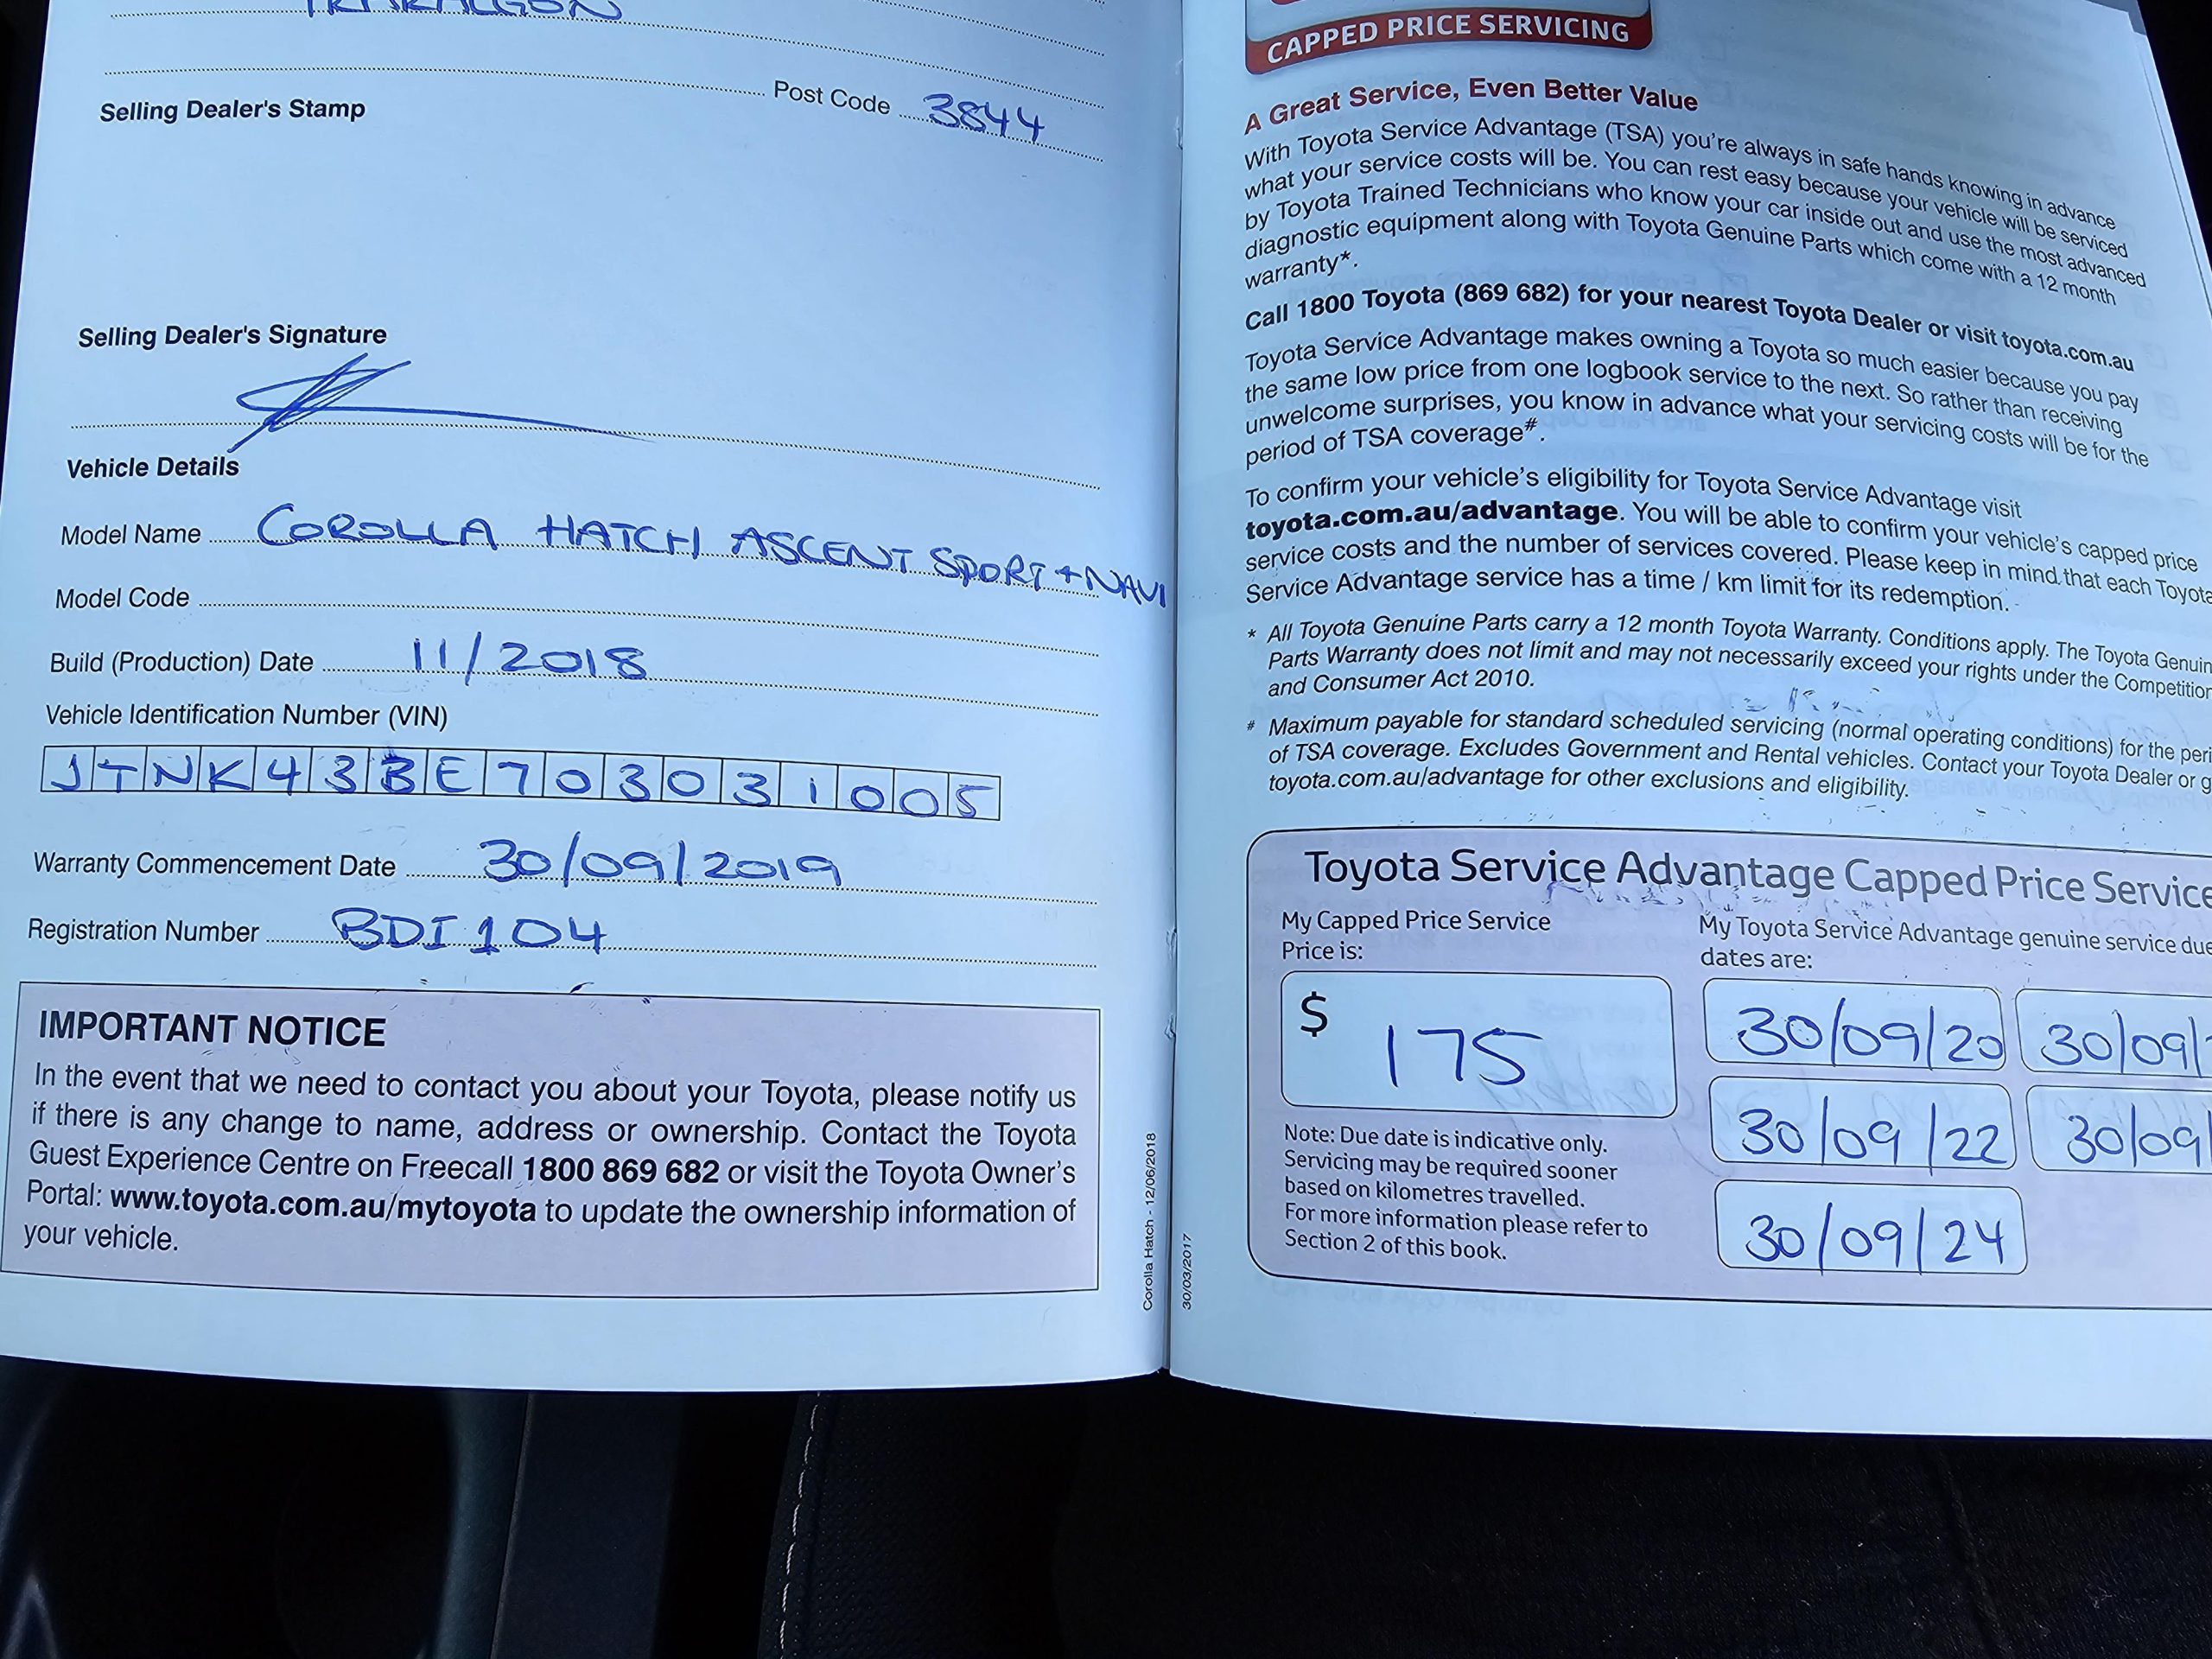 TRARALGON
Post Code 3844
Selling Dealer's Stamp
Selling Dealer's Signature
Vehicle Details
Model Name COROLLA HATCH ASCENT SPORT + NAVI
Model Code
Build (Production) Date 11/2018
Vehicle Identification Number (VIN)
JTNK43BE703031005
Warranty Commencement Date 30/09/2019
Registration Number BDI 104
IMPORTANT NOTICE
In the event that we need to contact you about your Toyota, please notify us
if there is any change to name, address or ownership. Contact the Toyota
Guest Experience Centre on Freecall 1800 869 682 or visit the Toyota Owner's
Portal: www.toyota.com.au/mytoyota to update the ownership information of
your vehicle.
Corolla Hatch - 12/06/2018
30/03/2017
CAPPED PRICE SERVICING
A Great Service, Even Better Value
With Toyota Service Advantage (TSA) you're always in safe hands knowing in advance
what your service costs will be. You can rest easy because your vehicle will be serviced
by Toyota Trained Technicians who know your car inside out and use the most advanced
diagnostic equipment along with Toyota Genuine Parts which come with a 12 month
warranty*.
Call 1800 Toyota (869 682) for your nearest Toyota Dealer or visit toyota.com.au
Toyota Service Advantage makes owning a Toyota so much easier because you pay
the same low price from one logbook service to the next. So rather than receiving
unwelcome surprises, you know in advance what your servicing costs will be for the
period of TSA coverage#.
To confirm your vehicle's eligibility for Toyota Service Advantage visit
toyota.com.au/advantage. You will be able to confirm your vehicle's capped price
service costs and the number of services covered. Please keep in mind that each Toyota
Service Advantage service has a time / km limit for its redemption.
* All Toyota Genuine Parts carry a 12 month Toyota Warranty. Conditions apply. The Toyota Genuin
Parts Warranty does not limit and may not necessarily exceed your rights under the Competition
and Consumer Act 2010.
# Maximum payable for standard scheduled servicing (normal operating conditions) for the peri
of TSA coverage. Excludes Government and Rental vehicles. Contact your Toyota Dealer or g
toyota.com.au/advantage for other exclusions and eligibility.
Toyota Service Advantage Capped Price Service
My Capped Price Service
Price is:
$ 175
Note: Due date is indicative only.
Servicing may be required sooner
based on kilometres travelled.
For more information please refer to
Section 2 of this book.
My Toyota Service Advantage genuine service due
dates are:
30/09/20 30/09/
30/09/22 30/09/
30/09/24